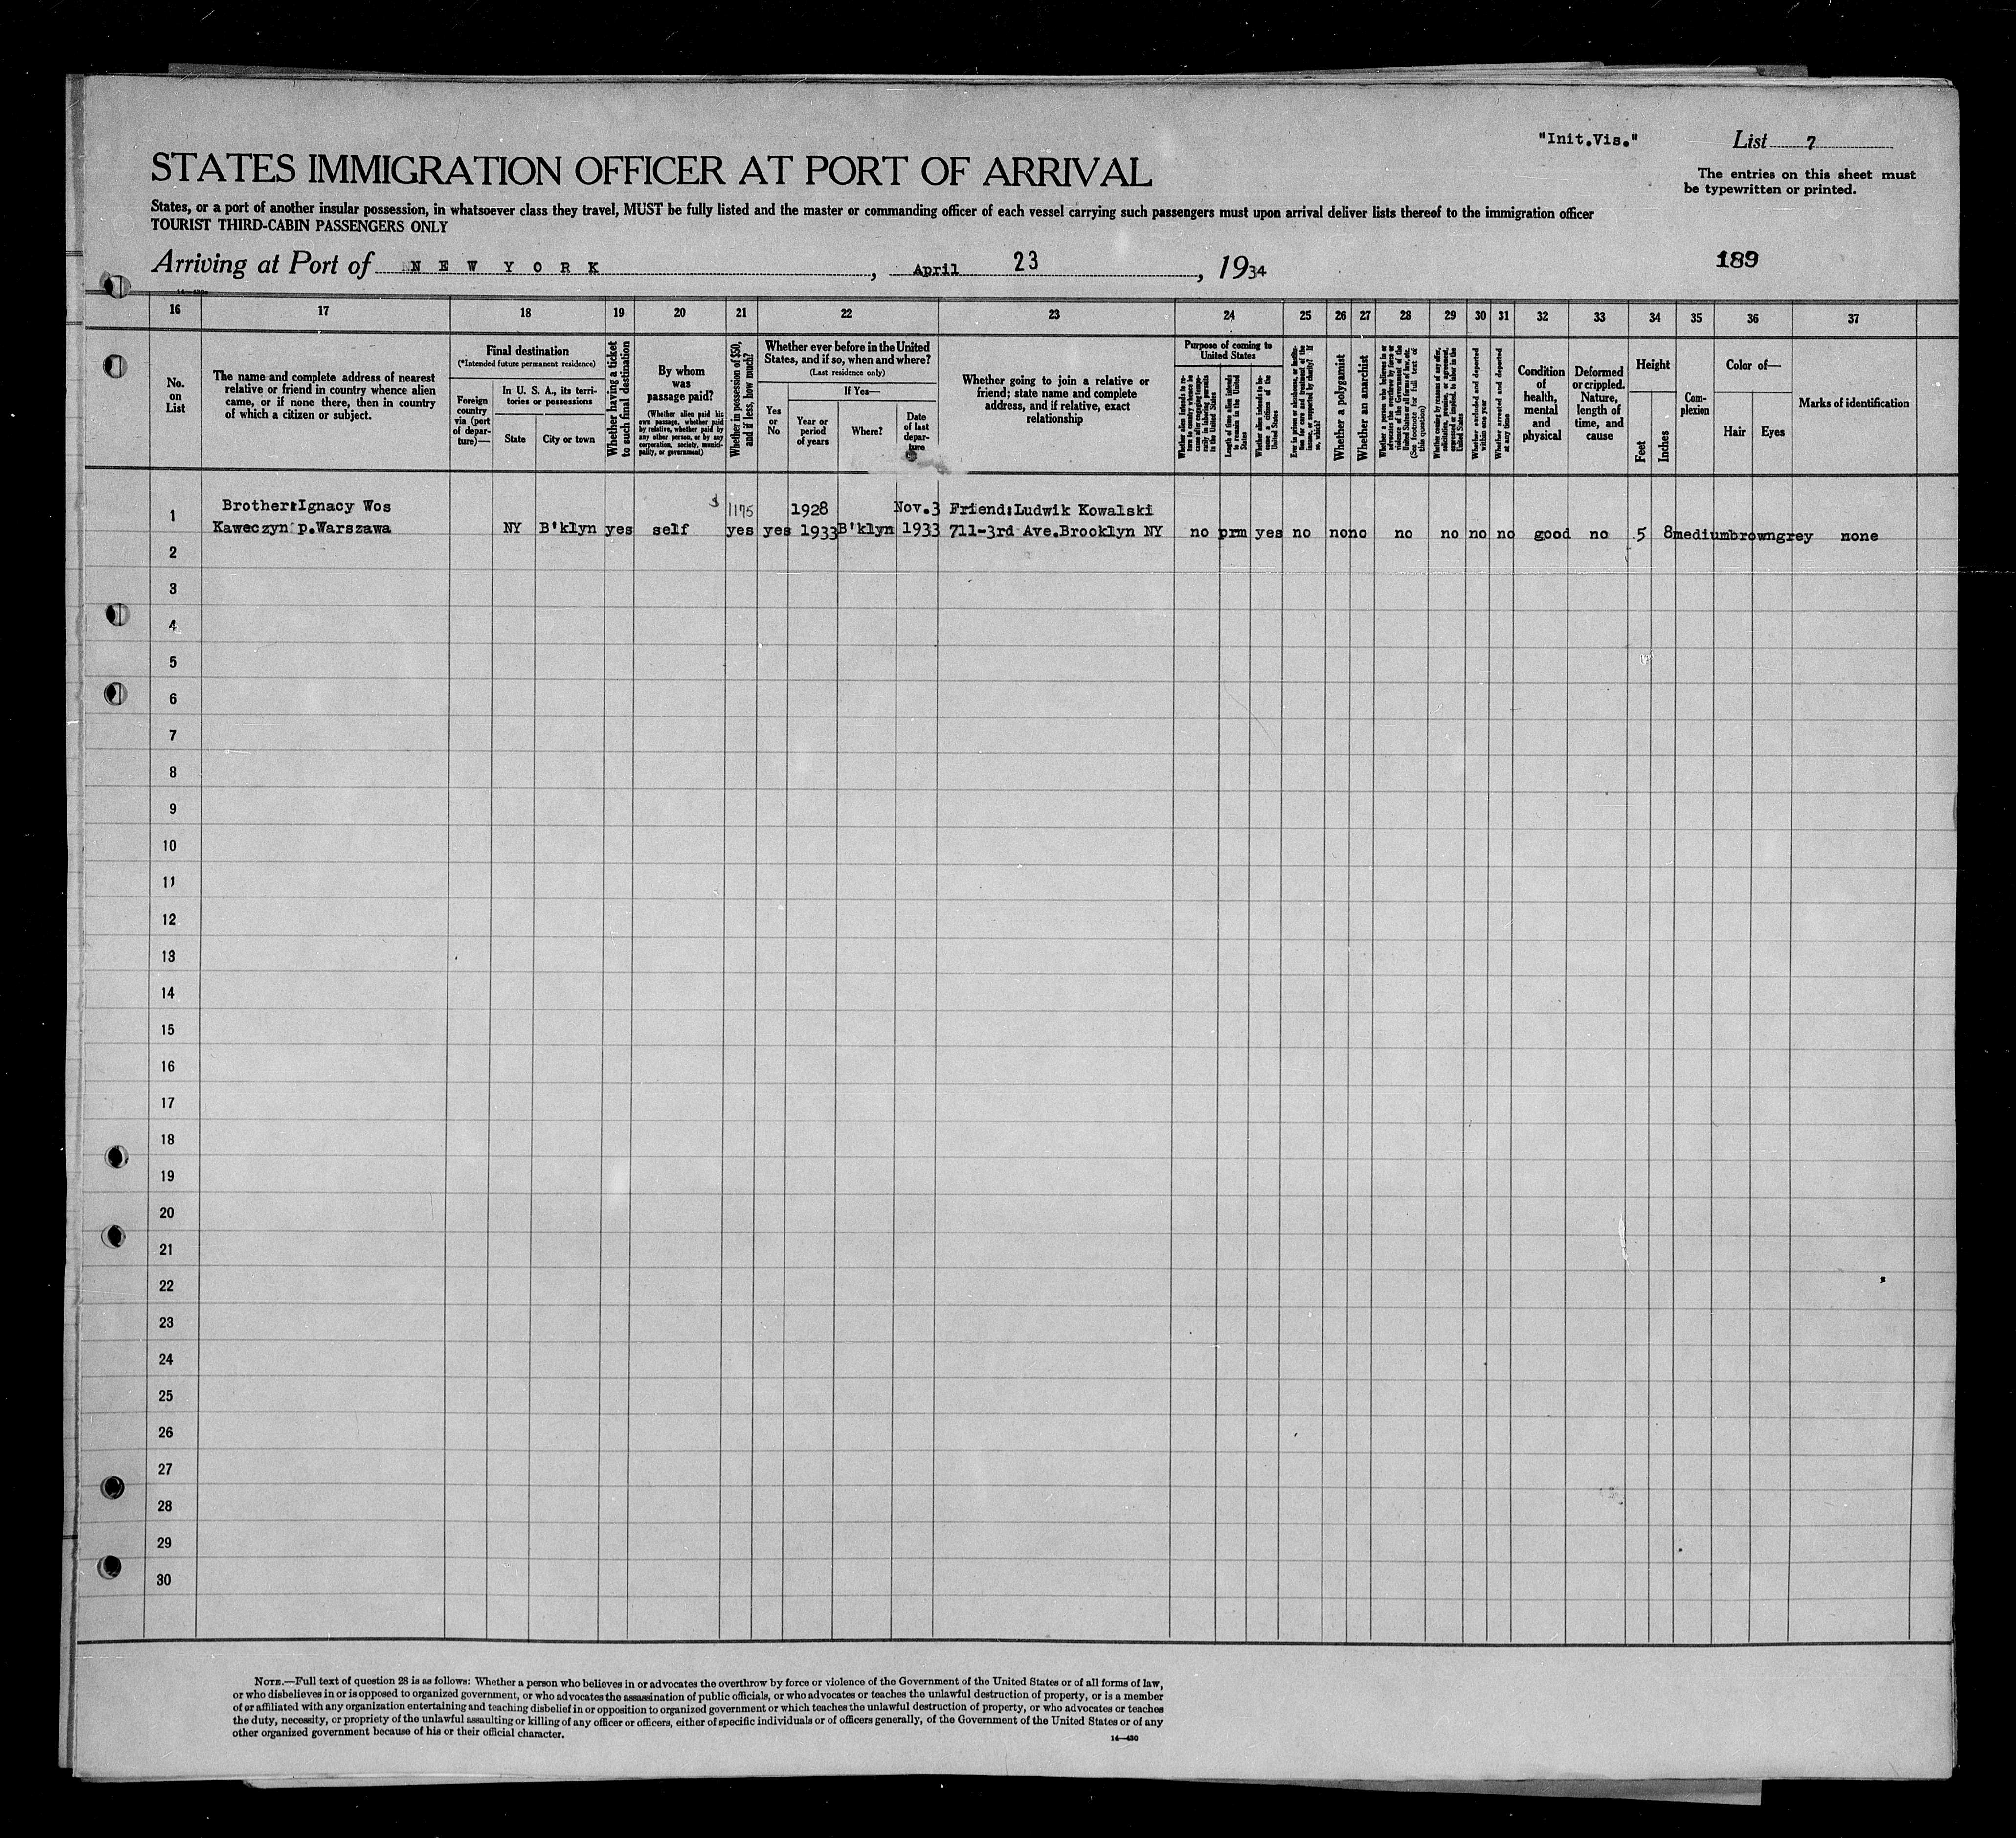 "Init.Vis."
List 7
STATES IMMIGRATION OFFICER AT PORT OF ARRIVAL
The entries on this sheet must
be typewritten or printed.
States, or a port of another insular possession, in whatsoever class they travel, MUST be fully listed and the master or commanding officer of each vessel carrying such passengers must upon arrival deliver lists thereof to the immigration officer
TOURIST THIRD-CABIN PASSENGERS ONLY
Arriving at Port of NEW YORK, April 23, 1934
189
16 17 18 19 20 21 22 23 24 25 26 27 28 29 30 31 32 33 34 35 36 37
No.
on
List
The name and complete address of nearest
relative or friend in country whence alien
came, or if none there, then in country
of which a citizen or subject.
Final destination
(*Intended future permanent residence)
Foreign
country
via (port
of depar-
ture)—
In U. S. A., its terri-
tories or possessions
State
City or town
Whether having a ticket
to such final destination
By whom
was
passage paid?
(Whether alien paid his
own passage, whether paid
by relative, whether paid by
any other person, or by any
corporation, society, munici-
pality, or government)
Whether in possession of $50,
and if less, how much?
Whether ever before in the United
States, and if so, when and where?
(Last residence only)
Yes
or
No
If Yes—
Year or
period
of years
Where?
Date
of last
depar-
ture
Whether going to join a relative or
friend; state name and complete
address, and if relative, exact
relationship
Purpose of coming to
United States
Whether alien intends to re-
turn to country whence he
came after engaging tempo-
rarily in laboring pursuits
in the United States
Length of time alien intends
to remain in the United
States
Whether alien intends to be-
come a citizen of the
United States
Ever in prison or almshouse, or institu-
tion for care and treatment of the
insane, or supported by charity? If
so, which?
Whether a polygamist
Whether an anarchist
Whether a person who believes in or
advocates the overthrow by force or
violence of the Government of the
United States or all forms of law, etc.
(See footnote for full text of
this question)
Whether coming by reasons of any offer,
solicitation, promise, or agreement,
expressed or implied, to labor in the
United States
Whether excluded and deported
within one year
Whether arrested and deported
at any time
Condition
of
health,
mental
and
physical
Deformed
or crippled.
Nature,
length of
time, and
cause
Height
Feet
Inches
Com-
plexion
Color of—
Hair
Eyes
Marks of identification
1 Brother:Ignacy Wos $ 1175 1928 Nov.3 Friend:Ludwik Kowalski
Kaweczyn p.Warszawa NY B'klyn yes self yes yes 1933 B'klyn 1933 711-3rd Ave.Brooklyn NY no prm yes no no no no no no no good no 5 8 medium brown grey none
2
3
4
5
6
7
8
9
10
11
12
13
14
15
16
17
18
19
20
21
22
23
24
25
26
27
28
29
30
NOTE.—Full text of question 28 is as follows: Whether a person who believes in or advocates the overthrow by force or violence of the Government of the United States or of all forms of law,
or who disbelieves in or is opposed to organized government, or who advocates the assassination of public officials, or who advocates or teaches the unlawful destruction of property, or is a member
of or affiliated with any organization entertaining and teaching disbelief in or opposition to organized government or which teaches the unlawful destruction of property, or who advocates or teaches
the duty, necessity, or propriety of the unlawful assaulting or killing of any officer or officers, either of specific individuals or of officers generally, of the Government of the United States or of any
other organized government because of his or their official character.
14—430